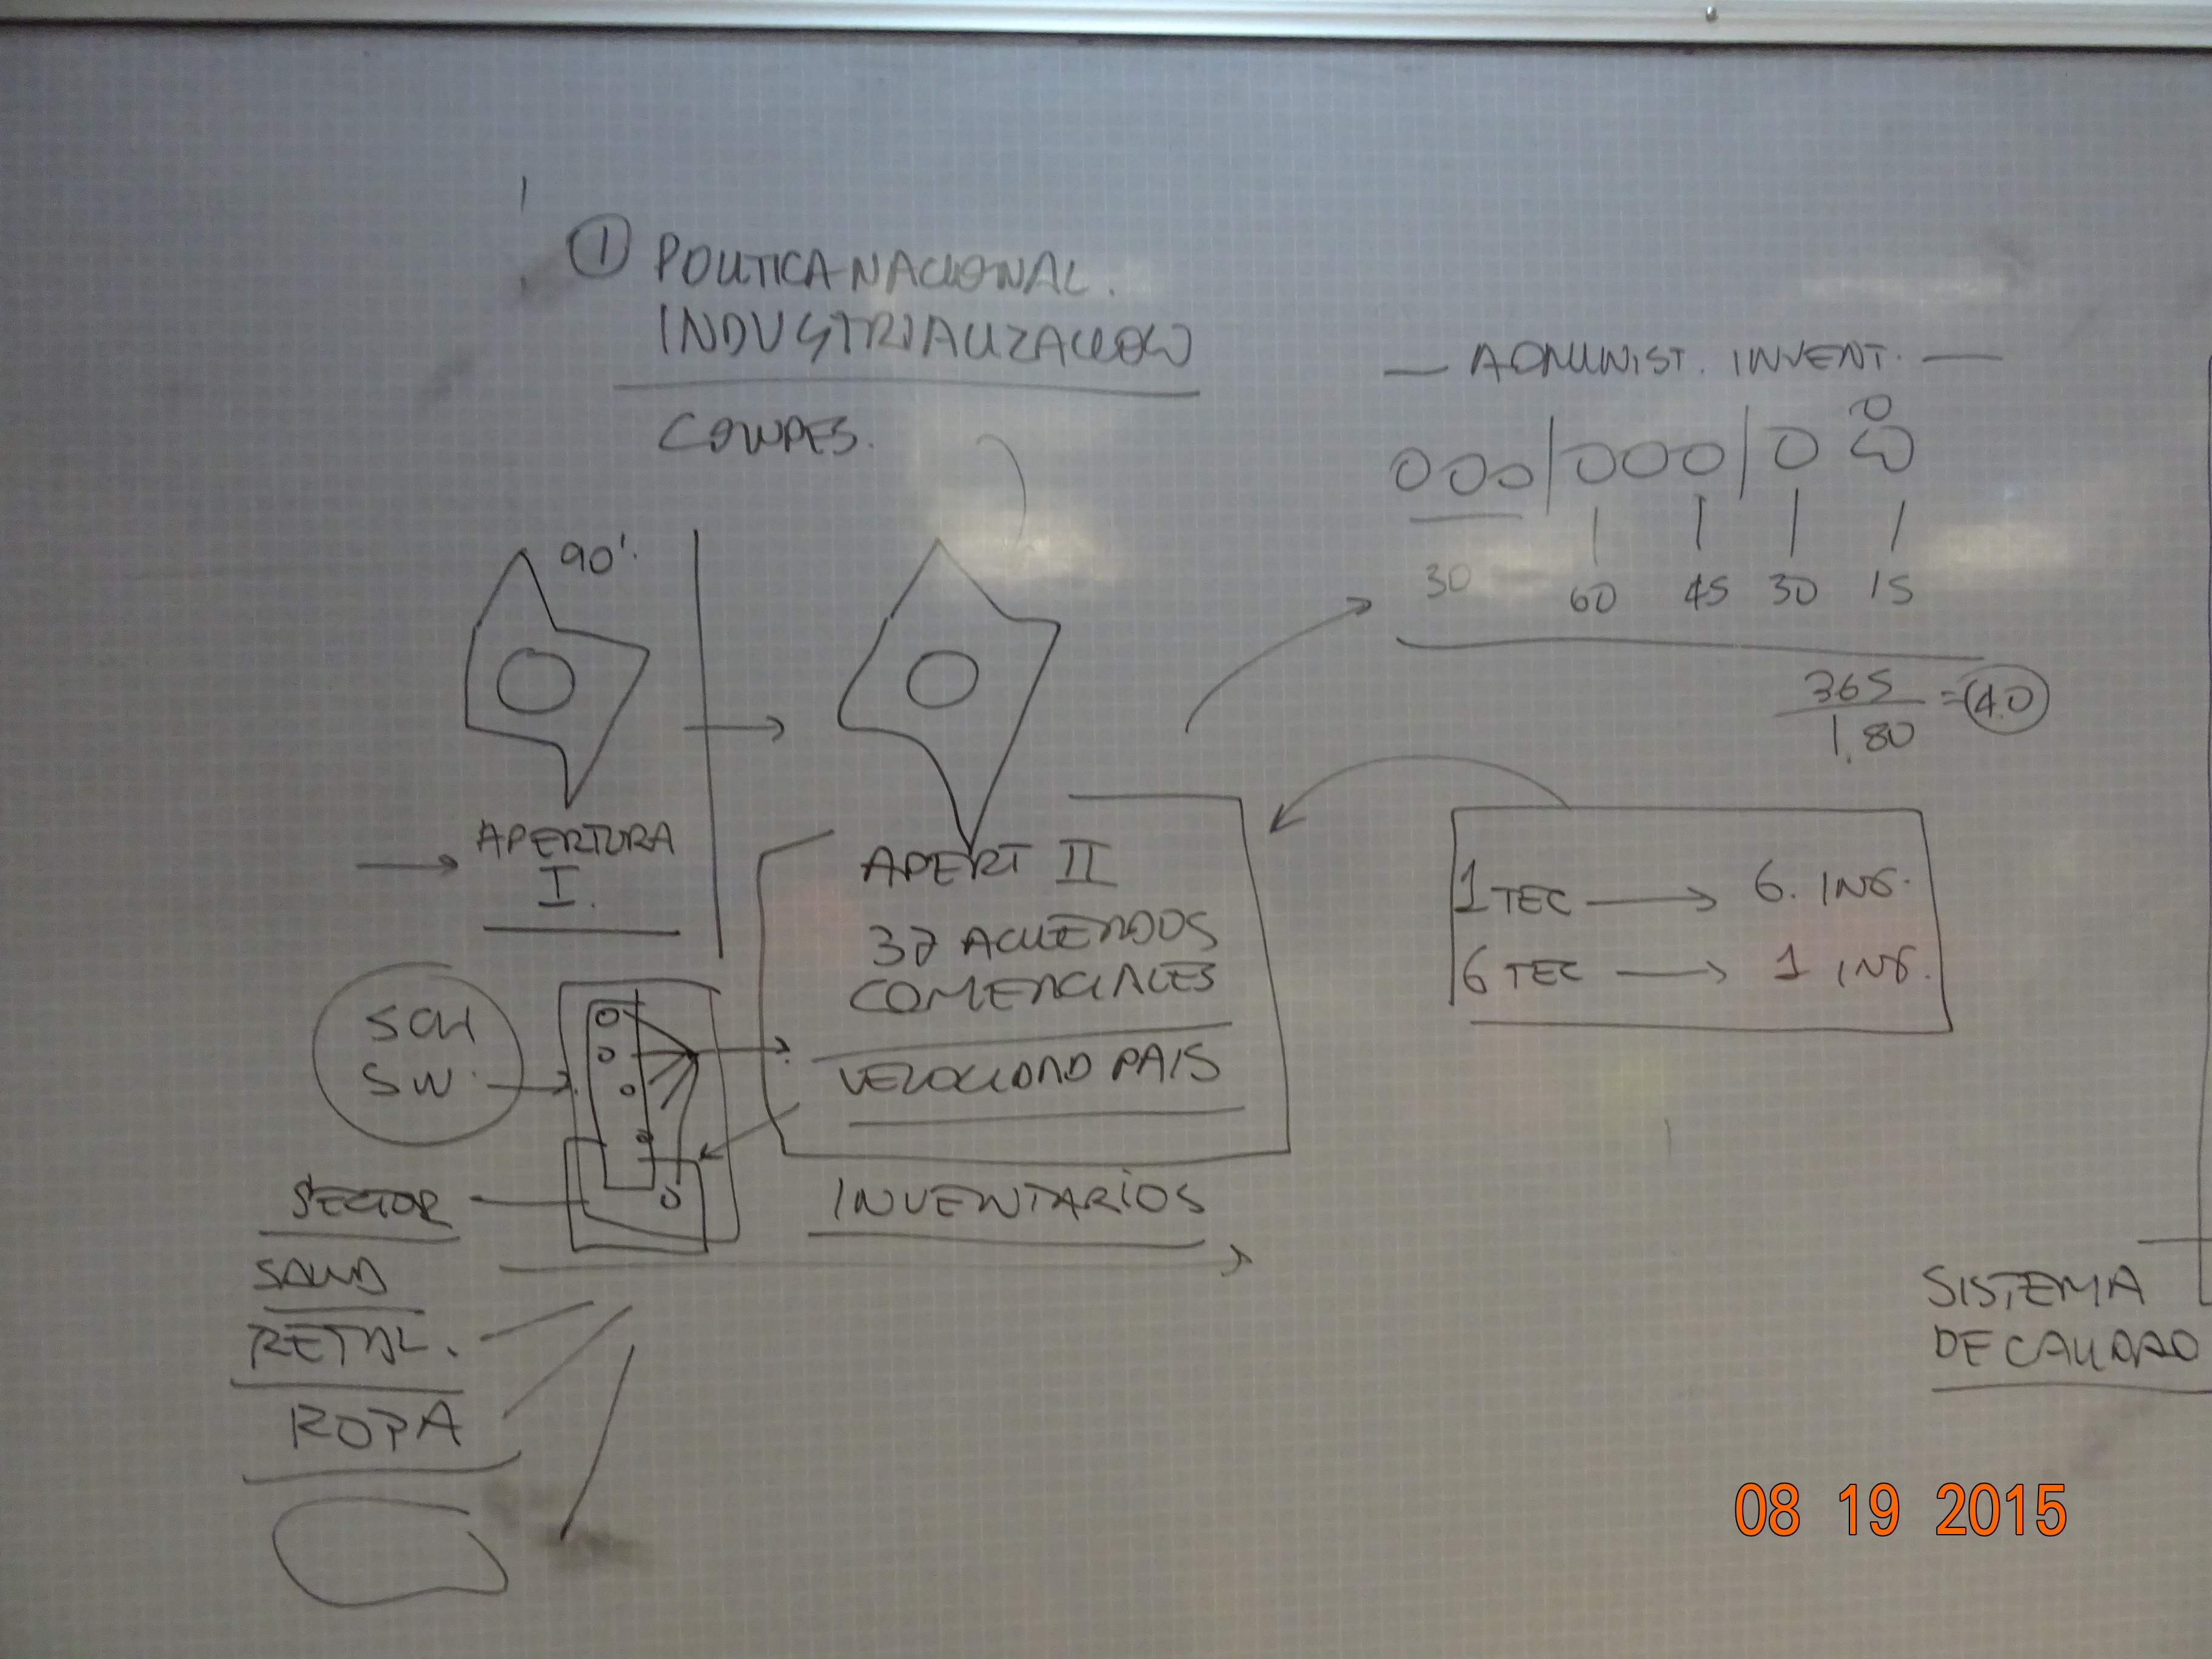 1 POLITICA NACIONAL.
INDUSTRIALIZACION
CONPES.
90'.
APERTURA
I.
APERT II
37 ACUERDOS
COMERCIALES
VELOCIDAD PAIS
INVENTARIOS
SCM
SW.
SECTOR
SALUD
RETAIL.
ROPA
— ADMINIST. INVENT. —
30 60 45 30 15
365
1.80
= 4.0
1 TEC → 6. ING.
6 TEC → 1 ING.
SISTEMA
DE CALIDAD
08 19 2015